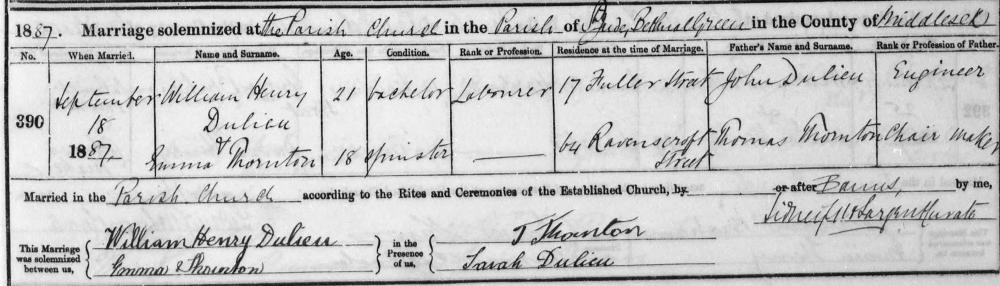 1887. Marriage solemnized at the Parish Church in the Parish of S Jude, Bethnal Green in the County of Middlesex
No. When Married. Name and Surname. Age. Condition. Rank or Profession. Residence at the time of Marriage. Father's Name and Surname. Rank or Profession of Father.
390 September 18 1887 William Henry Dulieu 21 bachelor Labourer 17 Fuller Street John Dulieu Engineer
& Emma Thornton 18 spinster — 64 Ravenscroft Street Thomas Thornton Chair maker
Married in the Parish Church according to the Rites and Ceremonies of the Established Church, by or after Banns, by me,
Sargent Curate
This Marriage was solemnized between us, William Henry Dulieu Emma Thornton in the Presence of us, T Thornton Sarah Dulieu